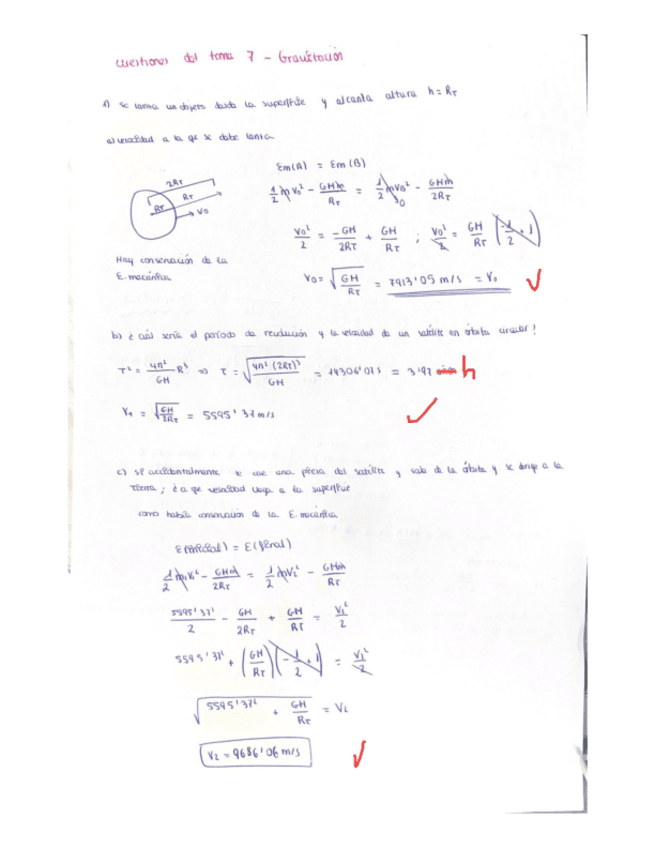 cuestiones del tema 7 - Gravitación
1) Se lanza un objeto desde la superficie y alcanza altura h = RT
a) velocidad a la que se debe lanzar.
2RT
RT
RT
V0
Hay conservación de la
E. mecánica
Em(A) = Em(B)
1/2 m V0² - GMm/RT = 1/2 m V0² - GMm/2RT
0
V0²/2 = -GM/2RT + GM/RT ; V0²/2 = GM/RT (-1/2 + 1)
V0 = √(GM/RT) = 7913'05 m/s = V0
b) ¿ cuál sería el período de revolución y la velocidad de un satélite en órbita circular?
T² = 4π²/GM R³ => T = √(4π² (2RT)³/GM) = 14306'07 s = 3'97 h
V1 = √(GM/2RT) = 5595'37 m/s
c) si accidentalmente se cae una pieza del satélite y sale de la órbita y se dirige a la
Tierra; ¿a qué velocidad llega a la superficie
como había conservación de la E. mecánica
E(inicial) = E(final)
1/2 m V1² - GMm/2RT = 1/2 m V2² - GMm/RT
5595'37²/2 - GM/2RT + GM/RT = V2²/2
5595'37² + (GM/RT)(-1/2 + 1) = V2²/2
√(5595'37² + GM/RT) = V2
V2 = 9686'06 m/s